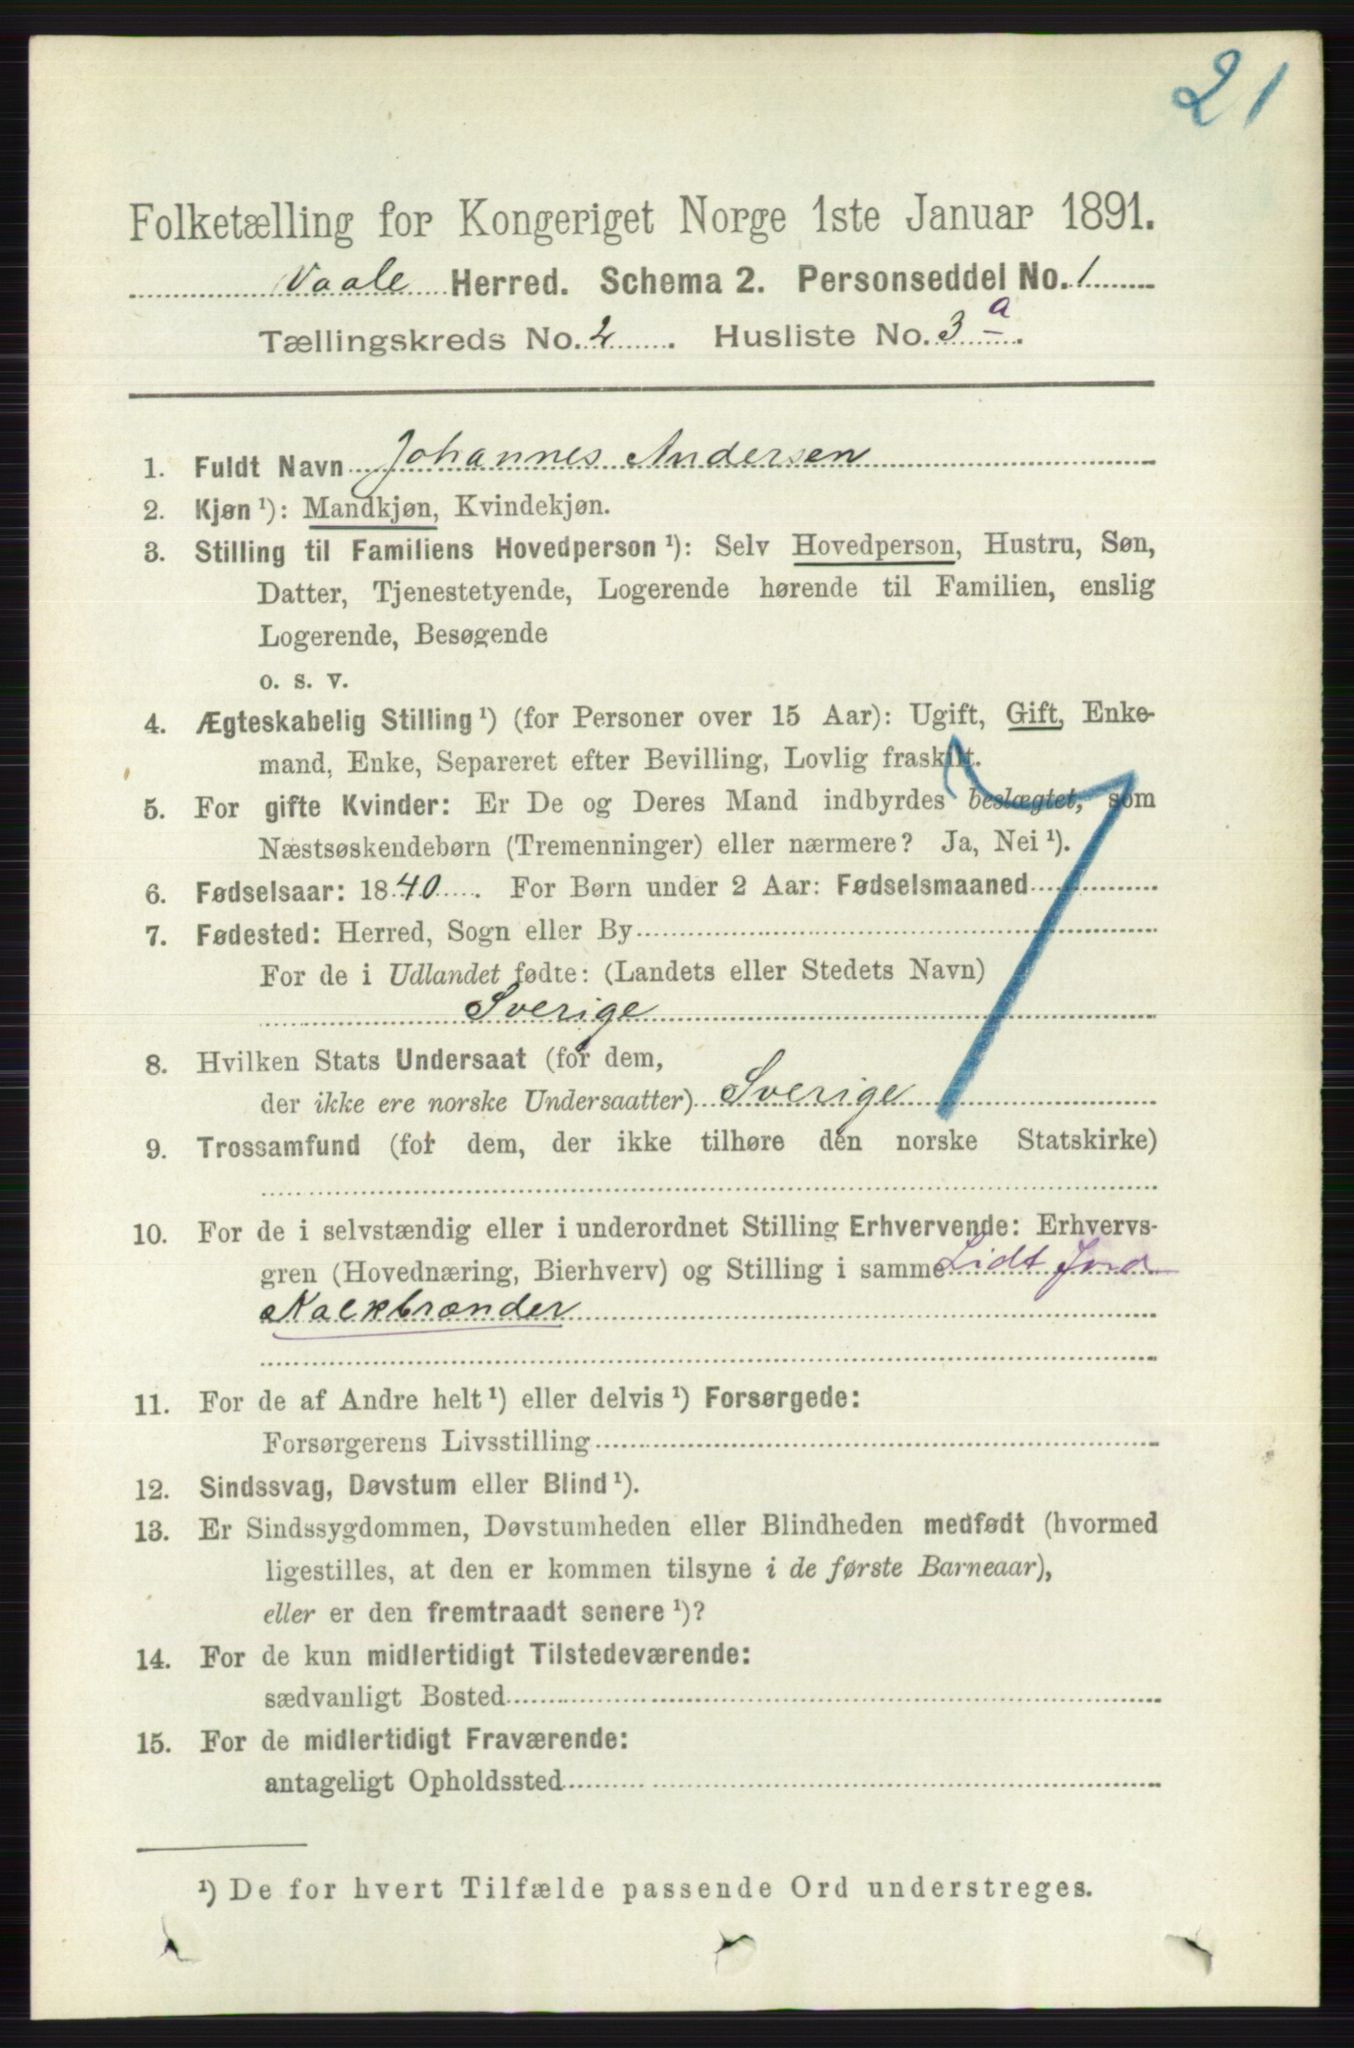 21
Folketælling for Kongeriget Norge 1ste Januar 1891.
Vaale Herred. Schema 2. Personseddel No. 1
Tællingskreds No. 2. Husliste No. 3 a.
1. Fuldt Navn Johannes Andersen
2. Kjøn ¹): Mandkjøn, Kvindekjøn.
3. Stilling til Familiens Hovedperson ¹): Selv Hovedperson, Hustru, Søn,
Datter, Tjenestetyende, Logerende hørende til Familien, enslig
Logerende, Besøgende
o. s. v.
4. Ægteskabelig Stilling ¹) (for Personer over 15 Aar): Ugift, Gift, Enke-
mand, Enke, Separeret efter Bevilling, Lovlig fraskilt.
5. For gifte Kvinder: Er De og Deres Mand indbyrdes beslægtet, som
Næstsøskendebørn (Tremenninger) eller nærmere? Ja, Nei ¹).
6. Fødselsaar: 1840. For Børn under 2 Aar: Fødselsmaaned
7. Fødested: Herred, Sogn eller By
For de i Udlandet fødte: (Landets eller Stedets Navn)
Sverige
8. Hvilken Stats Undersaat (for dem,
der ikke ere norske Undersaatter) Sverige
9. Trossamfund (for dem, der ikke tilhøre den norske Statskirke)
10. For de i selvstændig eller i underordnet Stilling Erhvervende: Erhvervs-
gren (Hovednæring, Bierhverv) og Stilling i samme Lidt Jord
Kalkbrænder
11. For de af Andre helt ¹) eller delvis ¹) Forsørgede:
Forsørgerens Livsstilling
12. Sindssvag, Døvstum eller Blind ¹).
13. Er Sindssygdommen, Døvstumheden eller Blindheden medfødt (hvormed
ligestilles, at den er kommen tilsyne i de første Barneaar),
eller er den fremtraadt senere ¹)?
14. For de kun midlertidigt Tilstedeværende:
sædvanligt Bosted
15. For de midlertidigt Fraværende:
antageligt Opholdssted
¹) De for hvert Tilfælde passende Ord understreges.